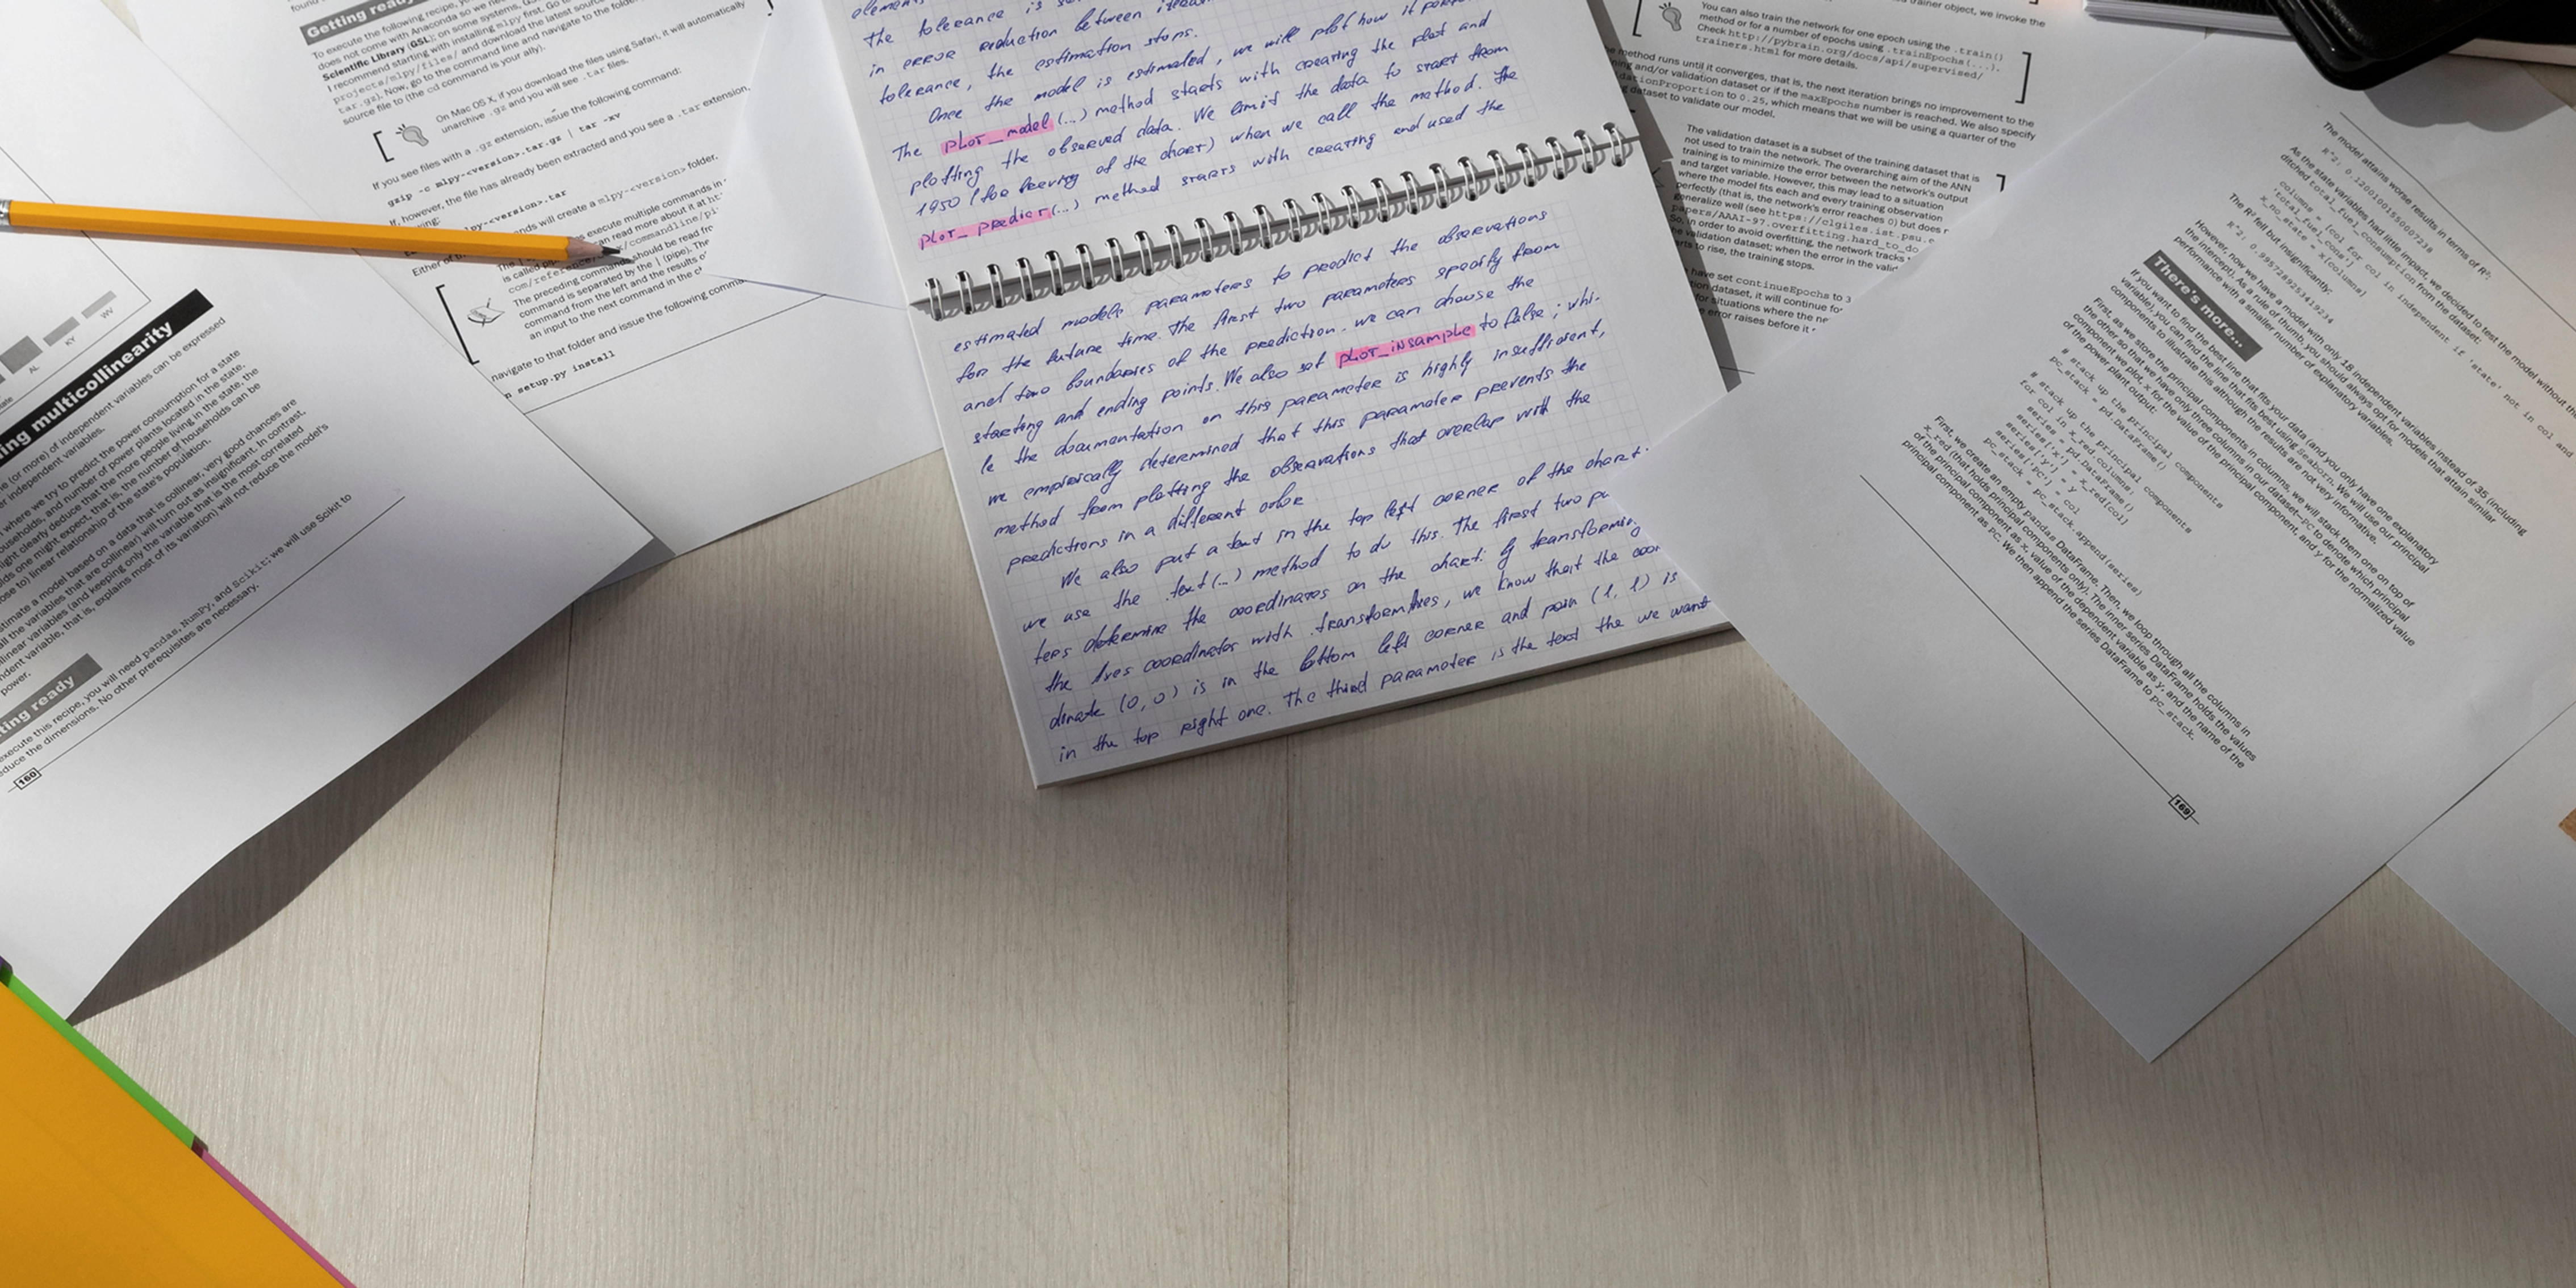 Getting ready
To execute the following recipe, you
does not come with Anaconda so we need
Scientific Library (GSL); on some systems, GSL
I recommend starting with installing mlpy first. Go to
projects/mlpy/files/ and download the latest source
tar.gz). Now, go to the command line and navigate to the folder
source file to (the cd command is your ally).
On Mac OS X, if you download the files using Safari, it will automatically
unarchive .gz and you will see .tar files.
If you see files with a .gz extension, issue the following command:
gzip -c mlpy-<version>.tar.gz | tar -xv
If, however, the file has already been extracted and you see a .tar extension,
py-<version>.tar
ands will create a mlpy-<version> folder.
Either of
execute multiple commands in
is called
can read more about it at
com/reference/
x/commandline/pi
The preceding command should be read fr
command is separated by the | (pipe). The
command from the left and the results o
an input to the next command in the
navigate to that folder and issue the following comma
setup.py install
WV
KY
AL
ing multicollinearity
(or more) of independent variables can be expressed
r independent variables.
where we try to predict the power consumption for a state
ouseholds, and number of power plants located in the state.
ight clearly deduce that the more people living in the state, the
olds one might expect, that is, the number of households can be
ose to) linear relationship of the state's population.
stimate a model based on a data that is collinear, very good chances are
all the variables that are collinear) will turn out as insignificant. In contrast,
linear variables (and keeping only the variable that is the most correlated
ndent variable, that is, explains most of its variation) will not reduce the model's
power.
ting ready
execute this recipe, you will need pandas, NumPy, and Scikit; we will use Scikit to
educe the dimensions. No other prerequisites are necessary.
160
elements
the tolerance is
in error reduction between
tolerance, the estimation stops.
Once the model is estimated, we will plot how it
The plot_model (...) method starts with creating the plot and
plotting the observed data. We limit the data to start from
1950 (for of the chart) when we call the method. The
plot_predict(...) method starts with creating and used the
estimated models parameters to predict the observations
for the future time. The first two parameters specify from
and two boundaries of the prediction. we can choose the
starting and ending points. We also set plot_insample to false; whi-
le the documentation on this parameter is highly insufficient,
we empirically determined that this parameter prevents the
method from plotting the observations that overlap with the
predictions in a different color
We also put a text in the top left corner of the chart.
we use the .text(...) method to do this. The first two pa
ters determine the coordinates on the chart: by transforming
the Axes coordinates with .transformAxes, we know that the coor
dinate (0,0) is in the bottom left corner and pain (1, 1) is
in the top right one. The third parameter is the text the we want
trainer object, we invoke the
You can also train the network for one epoch using the .train()
method or for a number of epochs using .trainEpochs(...).
Check http://pybrain.org/docs/api/supervised/
trainers.html for more details.
e method runs until it converges, that is, the next iteration brings no improvement to the
ning and/or validation dataset or if the maxEpochs number is reached. We also specify
dationProportion to 0.25, which means that we will be using a quarter of the
g dataset to validate our model.
The validation dataset is a subset of the training dataset that is
not used to train the network. The overarching aim of the ANN
training is to minimize the error between the network's output
and target variable. However, this may lead to a situation
where the model fits each and every training observation
perfectly (that is, the network's error reaches 0) but does
generalize well (see https://clgiles.ist.psu.e
papers/AAAI-97.overfitting.hard_to_do
So, in order to avoid overfitting, the network tracks
the validation dataset; when the error in the valid
rts to rise, the training stops.
have set continueEpochs to 3
ion dataset, it will continue fo
for situations where the
error raises before it
The model attains worse results in terms of R²:
As the state variables had little impact, we decided to test the model without th
ditched total_fuel_consumption from the dataset:
columns = [col for col in independent if 'state' not in col and
'total_fuel_cons']
x_no_state = x[columns]
The R² fell but insignificantly:
R^2: 0.9957289253419234
However, now we have a model with only 18 independent variables instead of 35 (including
the intercept). As a rule of thumb, you should always opt for models that attain similar
performance with a smaller number of explanatory variables.
There's more...
If you want to find the best line that fits your data (and you only have one explanatory
variable), you can find the line that fits best using Seaborn. We will use our principal
components to illustrate this although the results are not very informative.
First, as we store the principal components in columns, we will stack them one on top of
the other so that we have only three columns in our dataset—PC to denote which principal
component we plot, x for the value of the principal component, and y for the normalized value
of the power plant output:
# stack up the principal components
pc_stack = pd.DataFrame()
# stack up the principal components
for col in x_red.columns:
series = pd.DataFrame()
series['x'] = x_red[col]
series['y'] = y
series['PC'] = col
pc_stack = pc_stack.append(series)
First, we create an empty pandas DataFrame. Then, we loop through all the columns in
x_red (that holds principal components only). The inner series DataFrame holds the values
of the principal component as x, value of the dependent variable as y, and the name of the
principal component as PC. We then append the series DataFrame to pc_stack.
169